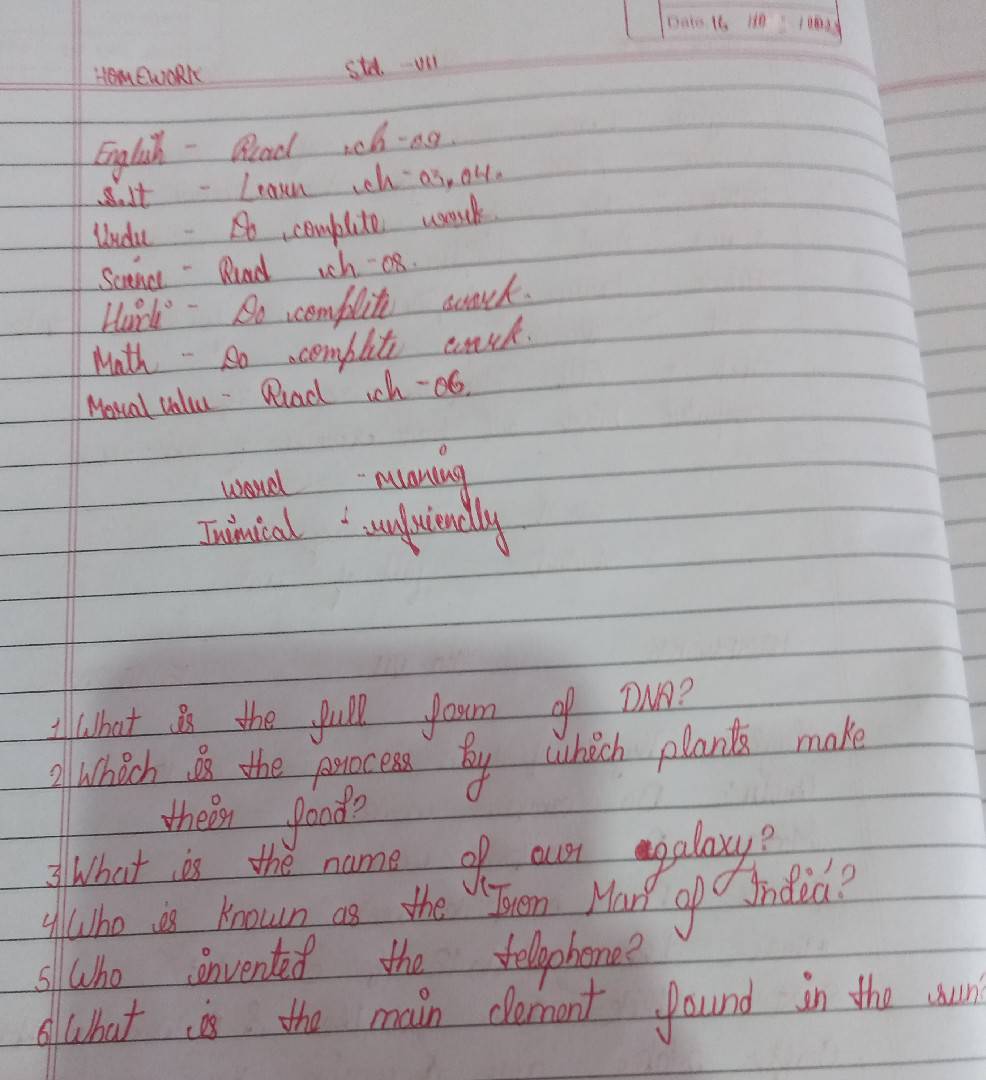 Date 16
HOMEWORK Std. - VII
English - Read ch-09.
S.st - Learn ch-03, 04.
Urdu - Do complite work.
Science - Read ch-08.
Hindi - Do complite work.
Math - Do complite work.
Moral value - Read ch-06.
Word - meaning
Inimical - unfriendly.
1 What is the full form of DNA?
2 Which is the process by which plants make
their food?
3 What is the name of our galaxy?
4 Who is known as the "Iron Man of India?
5 Who invented the telephone?
6 What is the main element found in the sun?